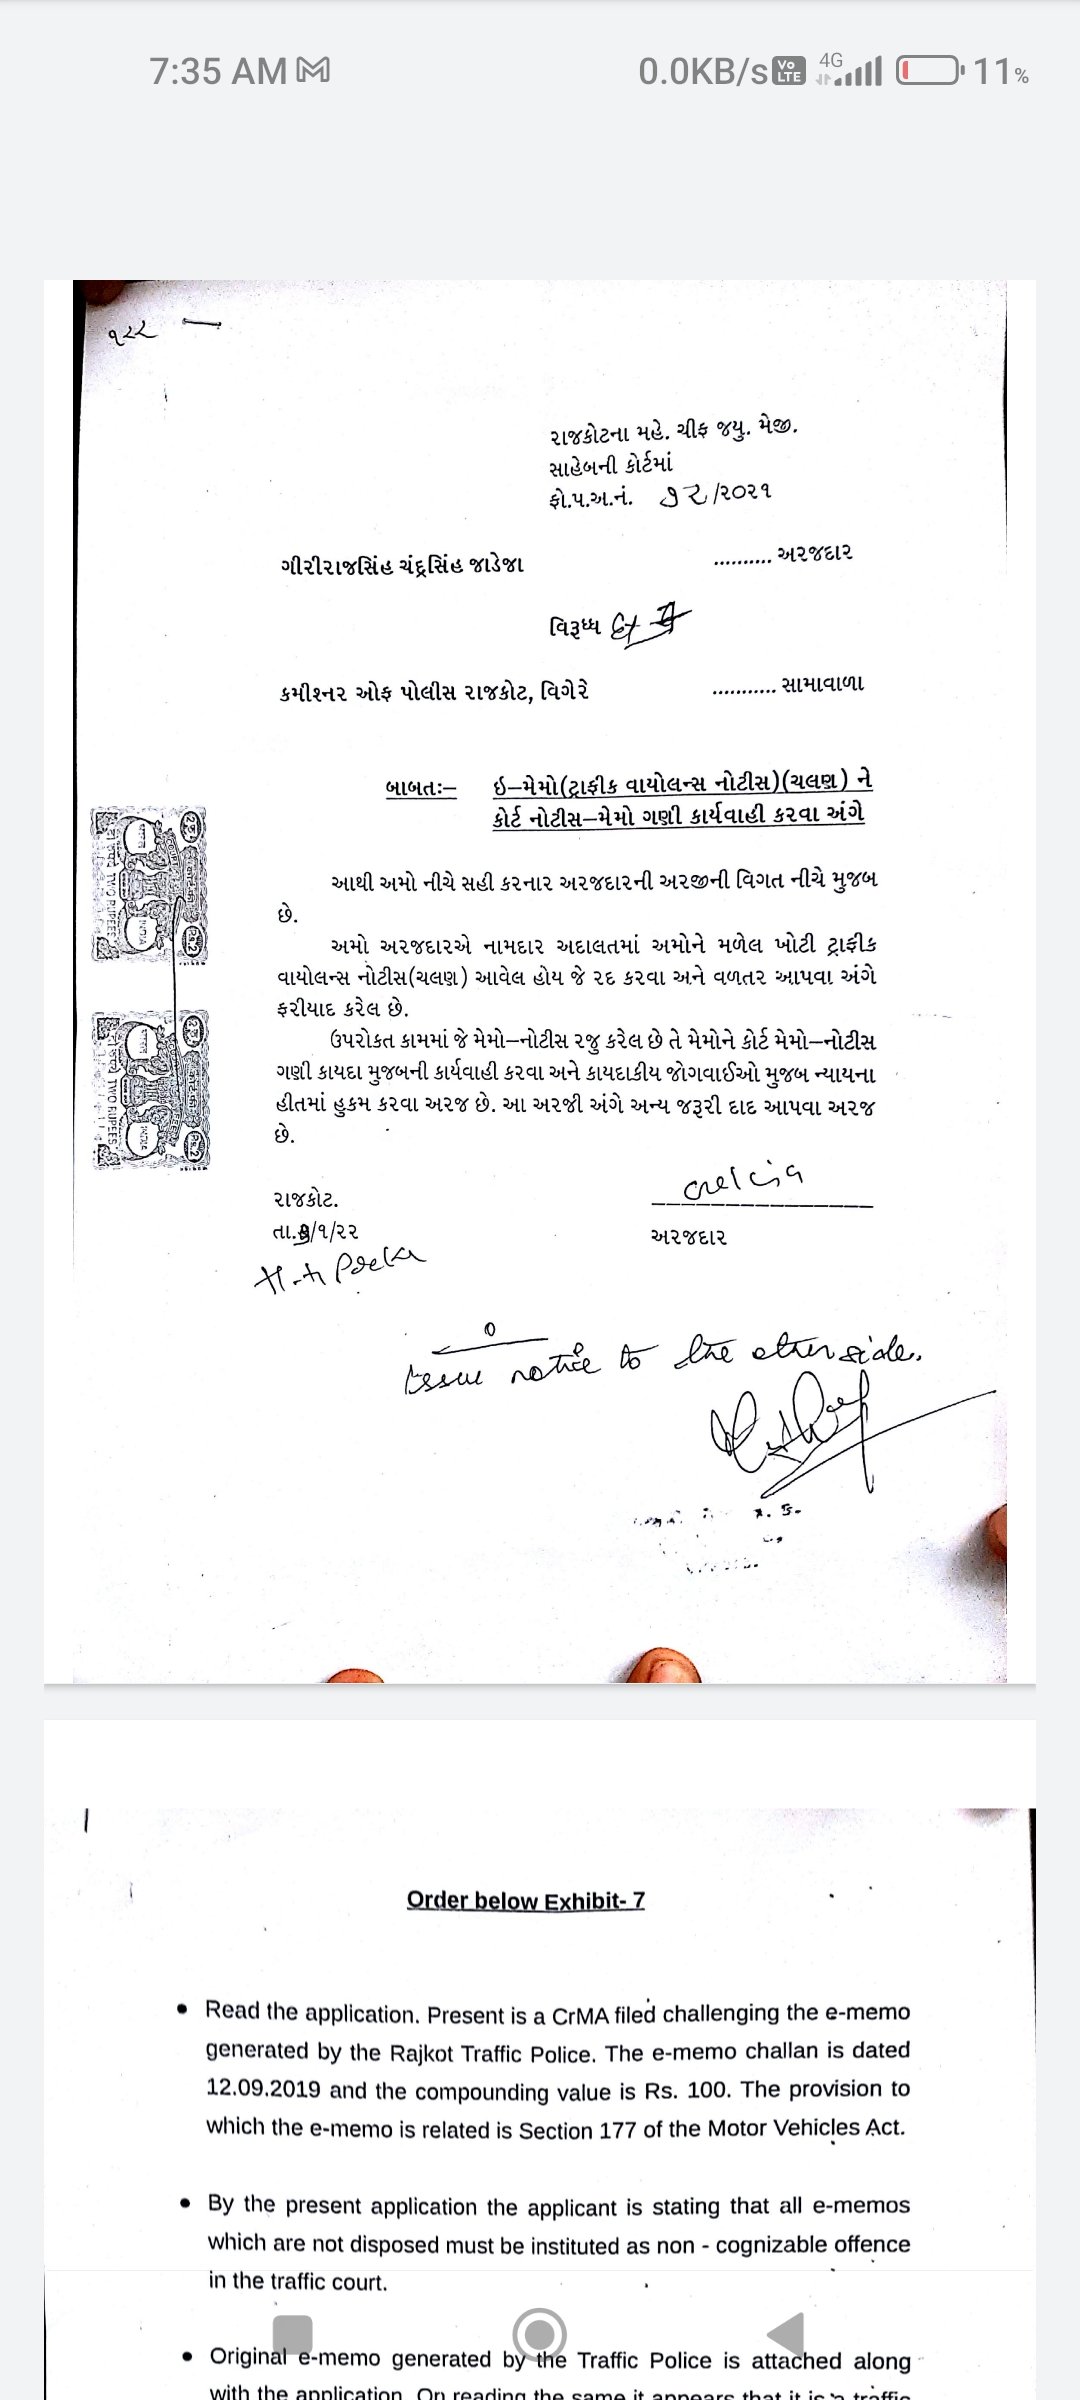 7:35 AM
0.0KB/s Vo LTE 4G 11%
૧૨૨
રાજકોટના મહે. ચીફ જયુ. મેજી.
સાહેબની કોર્ટમાં
ફો.પ.અ.નં. ૭૨/૨૦૨૧
ગીરીરાજસિંહ ચંદ્રસિંહ જાડેજા .......... અરજદાર
વિરૂધ્ધ
કમીશ્નર ઓફ પોલીસ રાજકોટ, વિગેરે ........... સામાવાળા
બાબતઃ– ઇ–મેમો(ટ્રાફીક વાયોલન્સ નોટીસ)(ચલણ) ને
કોર્ટ નોટીસ–મેમો ગણી કાર્યવાહી કરવા અંગે
આથી અમો નીચે સહી કરનાર અરજદારની અરજીની વિગત નીચે મુજબ
છે.
અમો અરજદારએ નામદાર અદાલતમાં અમોને મળેલ ખોટી ટ્રાફીક
વાયોલન્સ નોટીસ(ચલણ) આવેલ હોય જે રદ કરવા અને વળતર આપવા અંગે
ફરીયાદ કરેલ છે.
ઉપરોકત કામમાં જે મેમો–નોટીસ રજુ કરેલ છે તે મેમોને કોર્ટ મેમો–નોટીસ
ગણી કાયદા મુજબની કાર્યવાહી કરવા અને કાયદાકીય જોગવાઈઓ મુજબ ન્યાયના
હીતમાં હુકમ કરવા અરજ છે. આ અરજી અંગે અન્ય જરૂરી દાદ આપવા અરજ
છે.
TWO RUPEES
INDIA
TWO RUPEES
INDIA
રાજકોટ.
તા. /૧/૨૨
અરજદાર
Issue notice to the other side.
Order below Exhibit- 7
• Read the application. Present is a CrMA filed challenging the e-memo
generated by the Rajkot Traffic Police. The e-memo challan is dated
12.09.2019 and the compounding value is Rs. 100. The provision to
which the e-memo is related is Section 177 of the Motor Vehicles Act.
• By the present application the applicant is stating that all e-memos
which are not disposed must be instituted as non - cognizable offence
in the traffic court.
• Original e-memo generated by the Traffic Police is attached along
with the application. On reading the same it appears that it is a traffic